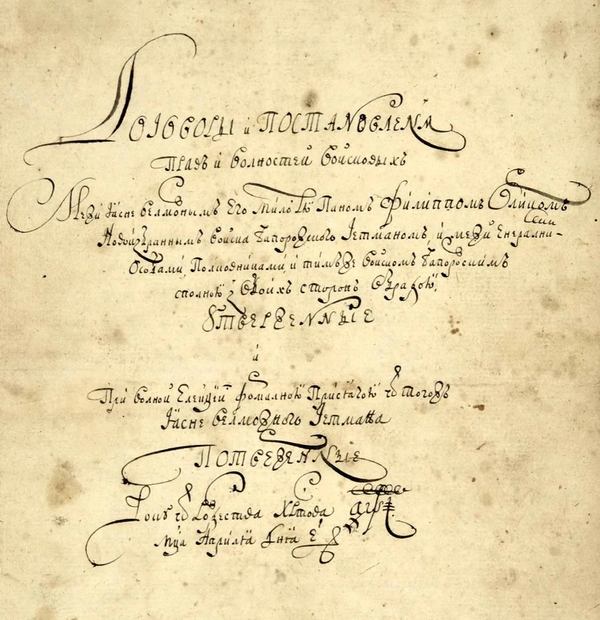 Договоры и Постановленѧ
Правъ и волностей войсковыхъ
Межи Ясне велможнымъ Его Милостю Паномъ Филиппомъ Орликомъ
Новоизбраннымъ войска Запорозского Гетманомъ, и межи Енерални-
Особами Полковниками и тимъже войскомъ Запорозскимъ
сполною з обоихъ сторонъ обрадою
Утвержденные
и
При волной Елекціи формалною Присягою ѿ тогожъ
Ясне велможного Гетмана
Потверженные
Року ѿ Рожества Христова ҂аѱі
Мца Априлѧ Е